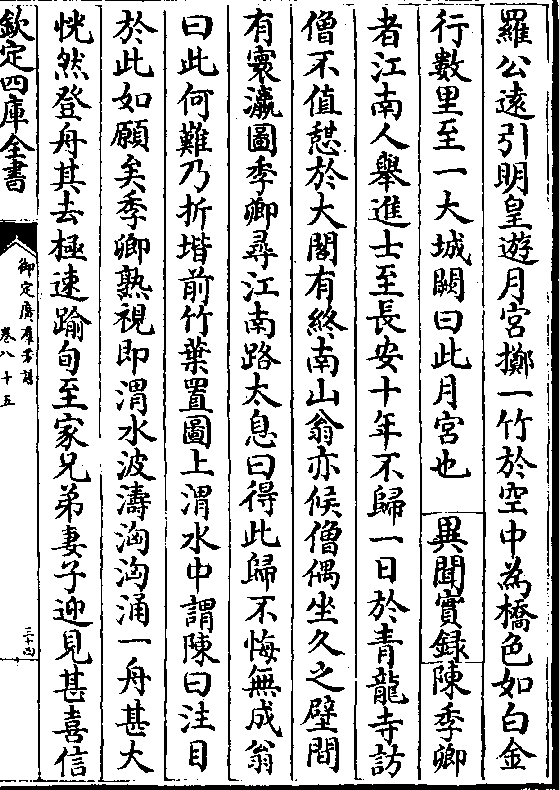 羅公遠引明皇遊月宮擲一竹於空中為橋色如白金
行數里至一大城闕曰此月宮也　異聞實錄陳季卿
者江南人舉進士至長安十年不歸一日於青龍寺訪
僧不值憇於大閣有終南山翁亦候僧偶坐久之壁間
有寰瀛圖季卿尋江南路太息曰得此歸不悔無成翁
曰此何難乃折堦前竹葉置圖上渭水中謂陳曰注目
於此如願矣季卿熟視即渭水波濤洶洶涌一舟甚大
恍然登舟其去極速踰旬至家兄弟妻子迎見甚喜信
欽定四庫全書
御定廣羣芳譜
卷八十五
三十四